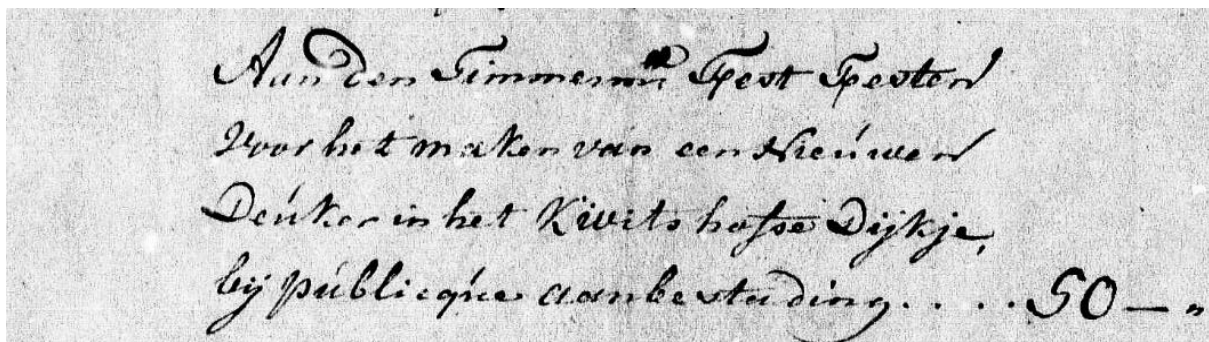 Aan den Timmerm̅n Fest Festen
Voor het maken van een Nieuwen
Deuker in het Kivits hofse Dijkje,
bij publicque aanbestading . . . . 50 — "